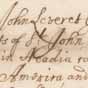 John Leveret
s of St John
in Acadia
America and